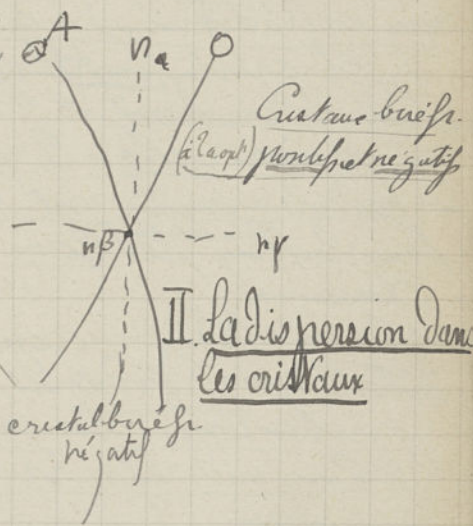 A
nα
Cristaux biréfr.
(à 2 axes opt.) positifs et négatifs
nβ
nγ
II. La dispersion dans
les cristaux
cristal biréfr.
négatif